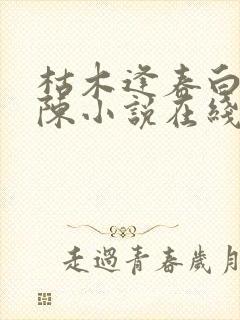 枯木逢春白
陳小說在綫
走過青春歲月